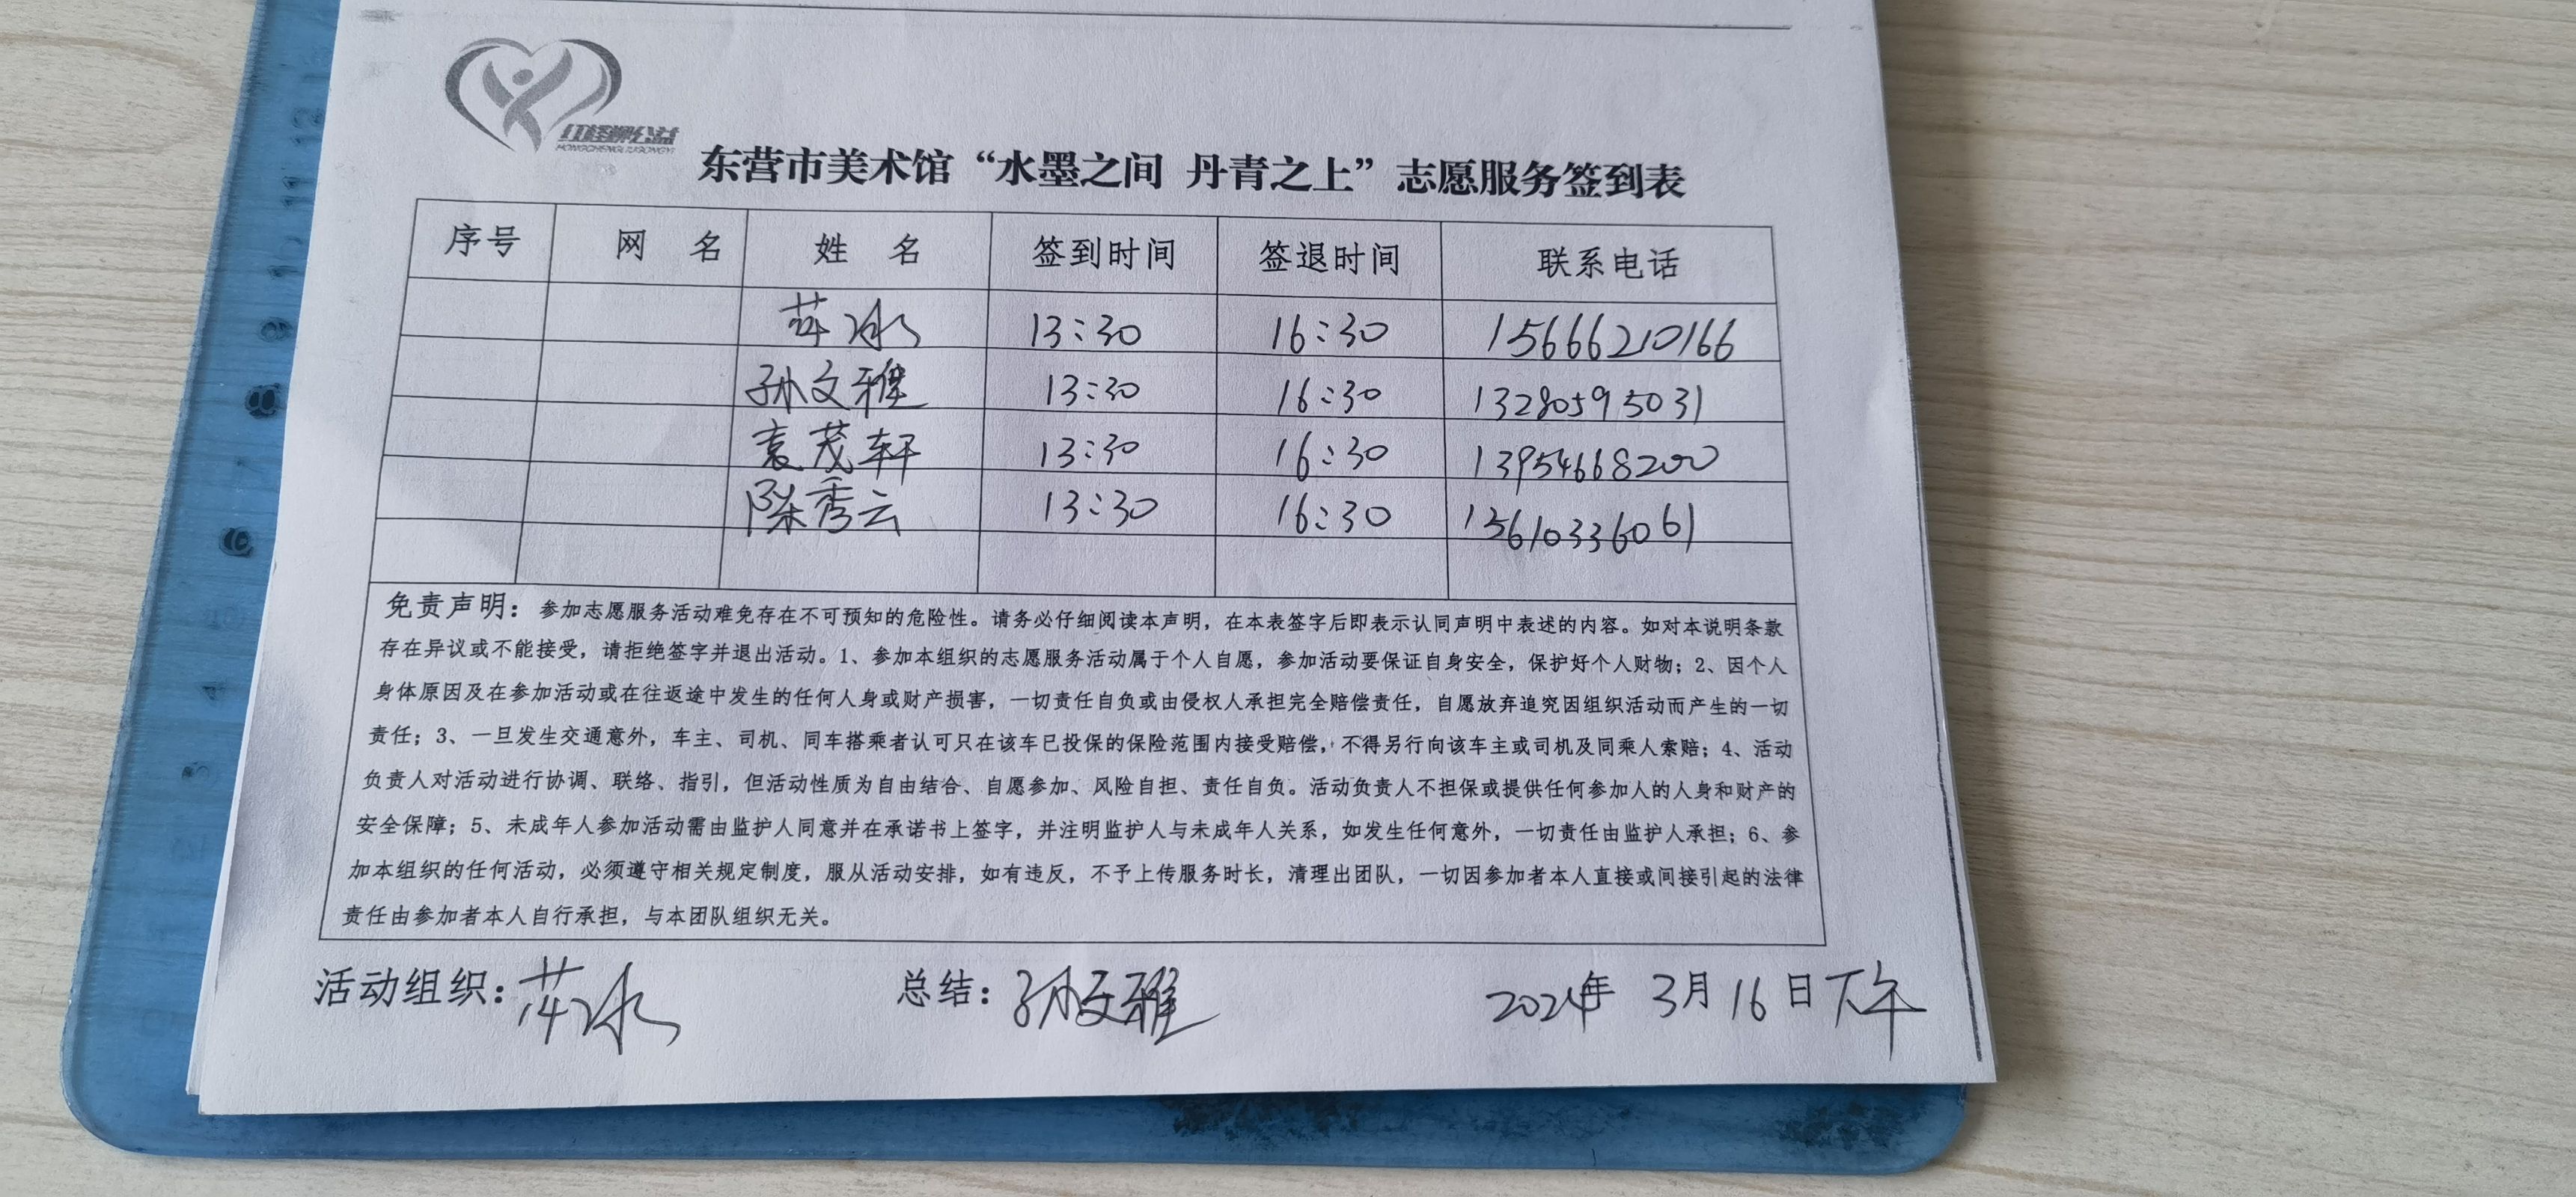 红柽柳公益
HONGCHENGLIUGONGYI
东营市美术馆“水墨之间 丹青之上”志愿服务签到表
序号 网 名 姓 名 签到时间 签退时间 联系电话
13:30 16:30 15666210166
孙文雅 13:30 16:30 13280595031
袁茂轩 13:30 16:30 13954668200
陈秀云 13:30 16:30 13561033606 1
免责声明：参加志愿服务活动难免存在不可预知的危险性。请务必仔细阅读本声明，在本表签字后即表示认同声明中表述的内容。如对本说明条款
存在异议或不能接受，请拒绝签字并退出活动。1、参加本组织的志愿服务活动属于个人自愿，参加活动要保证自身安全，保护好个人财物；2、因个人
身体原因及在参加活动或在往返途中发生的任何人身或财产损害，一切责任自负或由侵权人承担完全赔偿责任，自愿放弃追究因组织活动而产生的一切
责任；3、一旦发生交通意外，车主、司机、同车搭乘者认可只在该车已投保的保险范围内接受赔偿，不得另行向该车主或司机及同乘人索赔；4、活动
负责人对活动进行协调、联络、指引，但活动性质为自由结合、自愿参加、风险自担、责任自负。活动负责人不担保或提供任何参加人的人身和财产的
安全保障；5、未成年人参加活动需由监护人同意并在承诺书上签字，并注明监护人与未成年人关系，如发生任何意外，一切责任由监护人承担；6、参
加本组织的任何活动，必须遵守相关规定制度，服从活动安排，如有违反，不予上传服务时长，清理出团队，一切因参加者本人直接或间接引起的法律
责任由参加者本人自行承担，与本团队组织无关。
活动组织： 总结：孙文雅 2024年 3月16日下午